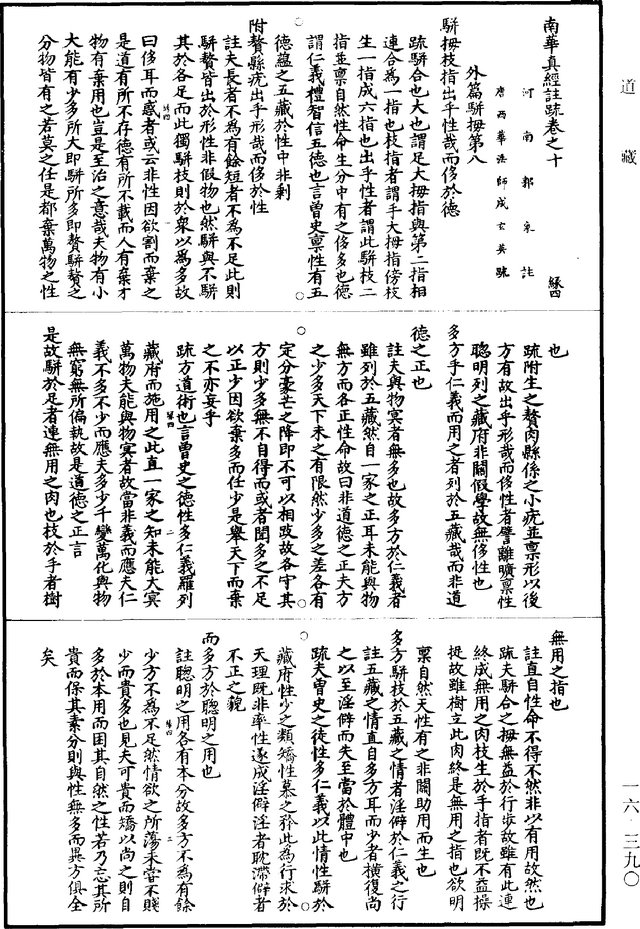 道藏
南華真經註疏卷之十
河南郭象註
唐西華法師成玄英疏
緣四
外篇駢拇第八
駢拇枝指出乎性哉而侈於德
疏駢合也大也謂足大拇指與第二指相
連合為一指也枝指者謂手大拇指傍枝
生一指成六指也出乎性者謂此駢枝二
指並稟自然性命生分中有之侈多也德
謂仁義禮智信五德也言曾史稟性有五
德蘊之五藏於性中非剩
附贅縣疣出乎形哉而侈於性
註夫長者不為有餘短者不為不足此則
駢贅皆出於形性非假物也然駢與不駢
其於各足而此獨駢枝則於眾以為多故
曰侈耳而惑者或云非性因欲割而棄之
是道有所不存德有所不載而人有棄才
物有棄用也豈是至治之意哉夫物有小
大能有少多所大即駢所多即贅駢贅之
分物皆有之若莫之任是都棄萬物之性
也
疏附生之贅肉縣係之小疣並稟形以後
方有故出乎形哉而侈性者譬離曠稟性
聰明列之藏府非關假學故無侈性也
多方乎仁義而用之者列於五藏哉而非道
德之正也
註夫與物冥者無多也故多方於仁義者
雖列於五藏然自一家之正耳未能與物
無方而各正性命故曰非道德之正夫方
之少多天下未之有限然少多之差各有
定分豪芒之降即不可以相跂故各守其
方則少多無不自得而或者聞多之不足
以正少因欲棄多而任少是舉天下而棄
之不亦妄乎
疏方道術也言曾史之德性多仁義羅列
藏府而施用之此直一家之知未能大冥
萬物夫能與物冥者故當非義而應夫仁
義不多不少而應夫多少千變萬化與物
無窮無所偏執故是道德之正言
是故駢於足者連無用之肉也枝於手者樹
無用之指也
註直自性命不得不然非以有用故然也
疏夫駢合之拇無益於行步故雖有此連
終成無用之肉枝生於手指者既不益操
捉故雖樹立此肉終是無用之指也欲明
稟自然天性有之非關助用而生也
多方駢枝於五藏之情者淫僻於仁義之行
註五藏之情直自多方耳而少者橫復尚
之以至淫僻而失至當於體中也
疏夫曾史之徒性多仁義以此情性駢於
藏府性少之類矯性慕之矜此為行求於
天理既非率性遂成淫僻淫者耽滯僻者
不正之貌
而多方於聰明之用也
註聰明之用各有本分故多方不為有餘
少方不為不足然情欲之所蕩未嘗不賤
少而貴多也見夫可貴而矯以尚之則自
多於本用而困其自然之性若乃忘其所
貴而保其素分則與性無多而異方俱全
矣
一六·三九〇